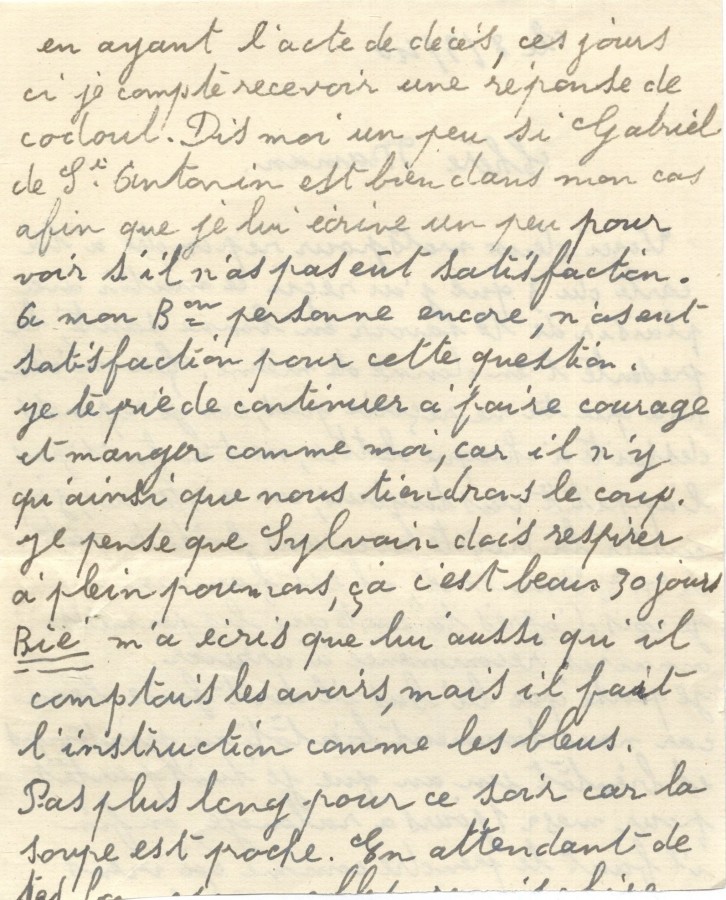 en ayant l'acte de décès, ces jours
ci je compte recevoir une réponse de
codoul. Dis moi un peu si Gabriel
de St Antonin est bien dans mon cas
afin que je lui écrive un peu pour
voir s'il n'as pas eût satisfaction.
a mon Bon personne encore, n'as eut
satisfaction pour cette question.
je te prie de continuer a faire courage
et manger comme moi, car il n'y
qu'ainsi que nous tiendrons le coup.
je pense que Sylvain dois respirer
a plein poumons, ça c'est beau 30 jours
Bié m'a écris que lui aussi qu'il
comptais les avoirs, mais il fait
l'instruction comme les bleus.
Pas plus long pour ce soir car la
soupe est proche. En attendant de